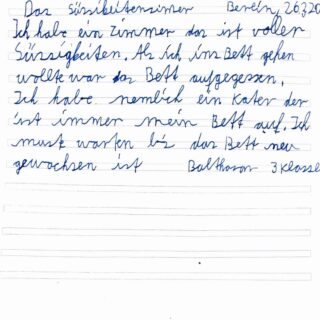 Das Süssibeitensimer Berein, 26.3.20
Ich habe ein Zimmer das ist voller
Süssigkeiten. Als ich ins Bett gehen
wollte war das Bett aufgegessen.
Ich habe nemlich ein Kater der
ist immer mein Bett auf. Ich
muste warten bis das Bett neu
gewachsen ist Balthasar 3 Klasse